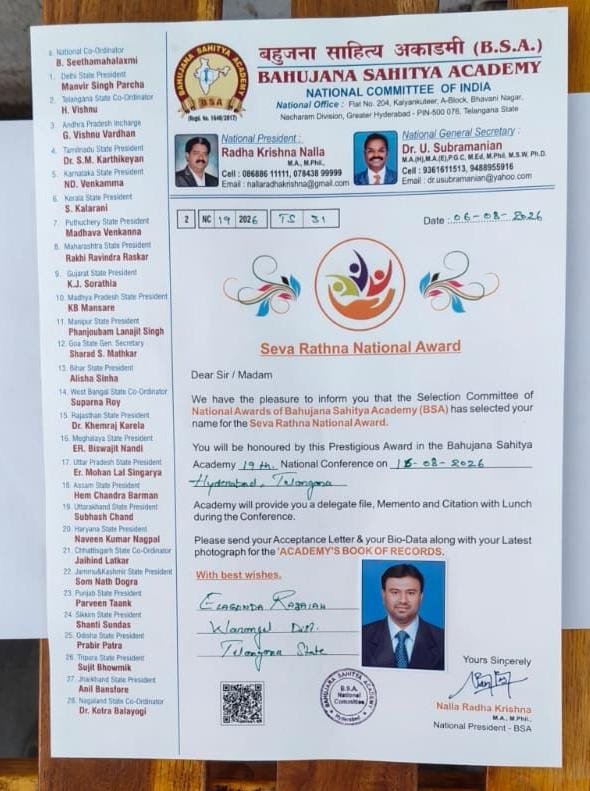 a. National Co-Ordinator
B. Seethamahalaxmi
1. Delhi State President
Manvir Singh Parcha
2. Telangana State Co-Ordinator
H. Vishnu
3. Andhra Pradesh Incharge
G. Vishnu Vardhan
4. Tamilnadu State President
Dr. S.M. Karthikeyan
5. Karnataka State President
ND. Venkamma
6. Kerala State President
S. Kalarani
7. Puthuchery State President
Madhava Venkanna
8. Maharashtra State President
Rakhi Ravindra Raskar
9. Gujarat State President
K.J. Sorathia
10. Madhya Pradesh State President
KB Mansare
11. Manipur State President
Phanjoubam Lanajit Singh
12. Goa State Gen. Secretary
Sharad S. Mathkar
13. Bihar State President
Alisha Sinha
14. West Bangal State Co-Ordinator
Suparna Roy
15. Rajasthan State President
Dr. Khemraj Karela
16. Meghalaya State President
ER. Biswajit Nandi
17. Uttar Pradesh State President
Er. Mohan Lal Singarya
18. Assam State President
Hem Chandra Barman
19. Uttarakhand State President
Subhash Chand
20. Haryana State President
Naveen Kumar Nagpal
21. Chhattisgarh State Co-Ordinator
Jaihind Latkar
22. Jammu&Kashmir State President
Som Nath Dogra
23. Punjab State President
Parveen Taank
24. Sikkim State President
Shanti Sundas
25. Odisha State President
Prabir Patra
26. Tripura State President
Sujit Bhowmik
27. Jharkhand State President
Anil Bansfore
28. Nagaland State Co-Ordinator
Dr. Kotra Balayogi
BAHUJANA SAHITYA ACADEMY
BSA
(Regd. No. 1648/2017)
बहुजना साहित्य अकाडमी (B.S.A.)
BAHUJANA SAHITYA ACADEMY
NATIONAL COMMITTEE OF INDIA
National Office : Flat No. 204, Kalyankuteer, A-Block, Bhavani Nagar,
Nacharam Division, Greater Hyderabad - PIN-500 076. Telangana State
National President :
Radha Krishna Nalla
M.A., M.Phil.,
Cell : 086886 11111, 078438 99999
Email : nallaradhakrishna@gmail.com
National General Secretary :
Dr. U. Subramanian
M.A.(H),M.A.(E),P.G.C, M.Ed, M.Phil, M.S.W, Ph.D.
Cell : 9361611513, 9488955916
Email : dr.usubramanian@yahoo.com
2 NC 19 2026 TS 31
Date : 06-08-2026
Seva Rathna National Award
Dear Sir / Madam
We have the pleasure to inform you that the Selection Committee of
National Awards of Bahujana Sahitya Academy (BSA) has selected your
name for the Seva Rathna National Award.
You will be honoured by this Prestigious Award in the Bahujana Sahitya
Academy 19th. National Conference on -08-2026
Hyderabad, Telangana
Academy will provide you a delegate file, Memento and Citation with Lunch
during the Conference.
Please send your Acceptance Letter & your Bio-Data along with your Latest
photograph for the 'ACADEMY'S BOOK OF RECORDS.
With best wishes.
Elagonda Rajaiah
Warangal Dist.
Telangana State
BAHUJANA SAHITYA ACADEMY
B.S.A.
National
Committee
Hyderabad
Yours Sincerely
Nalla Radha Krishna
M.A., M.Phil.,
National President - BSA